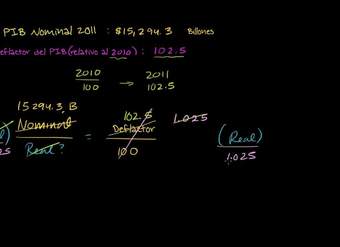 PIB Nominal 2011 : $15,294.3 Billones
deflactor del PIB (relativo al 2010) : 102.5
2010 2011
100 → 102.5
15 294.3 B
Nominal = 102.5 Deflactor 1.025
Real ? 100
(Real)
1.025